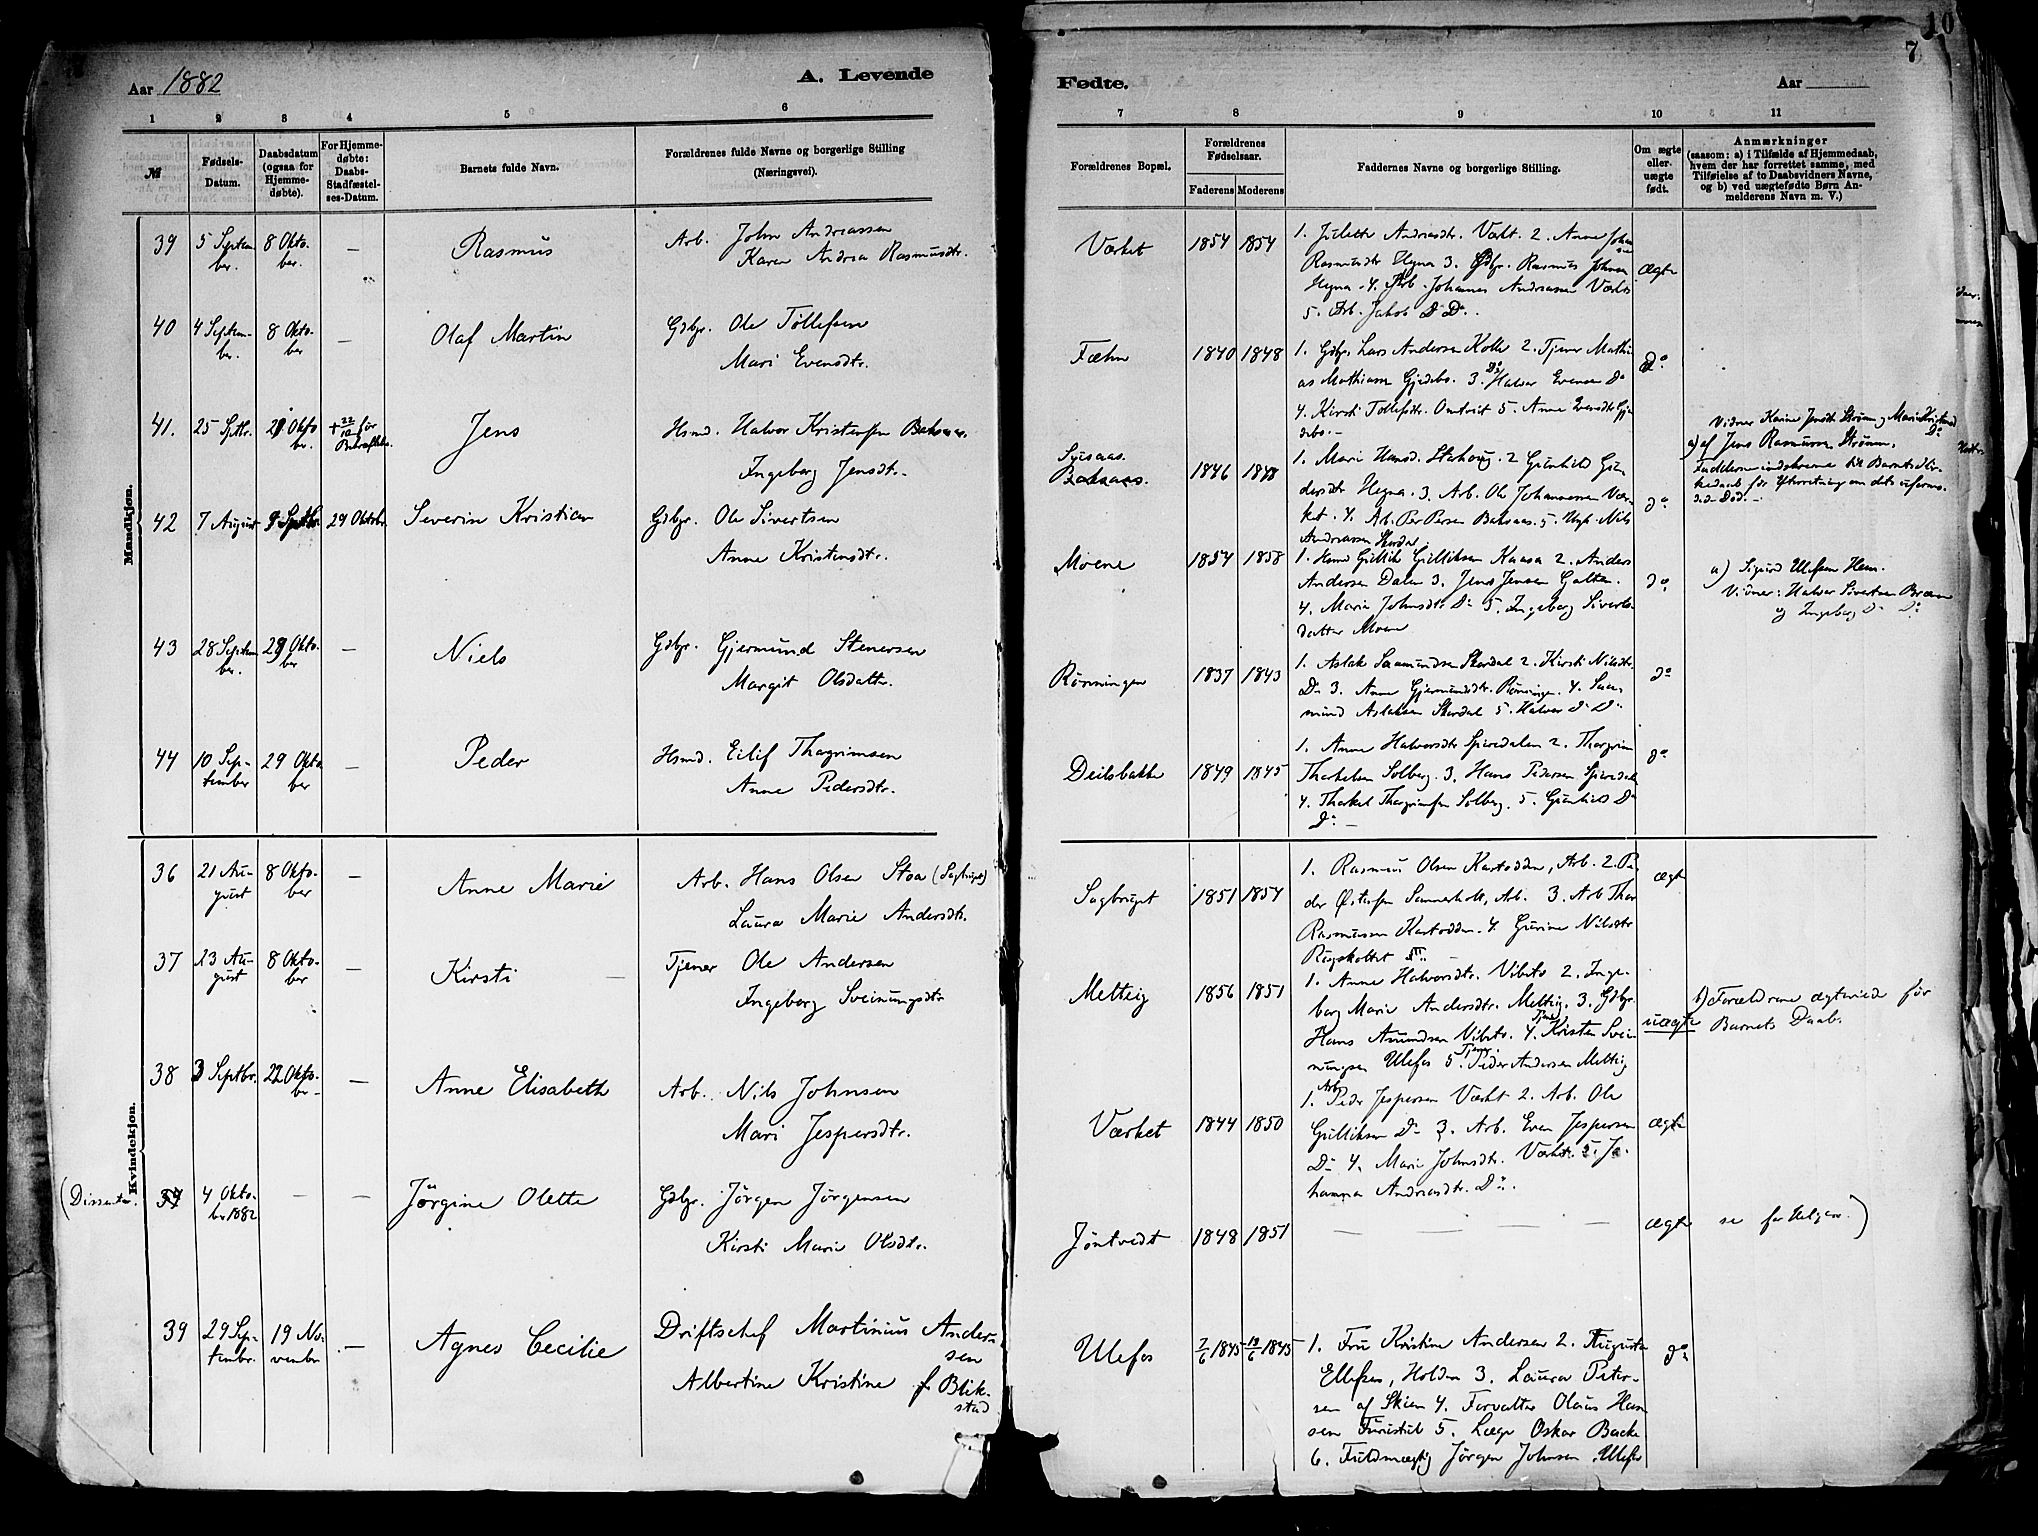 Aar 1882
A. Levende
1 2 3 4 5 6
№
Fødsels-
Datum.
Daabsdatum
(ogsaa for
Hjemme-
døbte).
For Hjemme-
døbte:
Daabs-
Stadfæstel-
ses-Datum.
Barnets fulde Navn.
Forældrenes fulde Navne og borgerlige Stilling
(Næringsvei).
Mandkjøn.
39 5 Septem 8 Okto- — Rasmus Arb. John Andreassen
ber. ber. Karen Andrea Rasmusdtr.
40 4 Septem- 8 Okto- — Olaf Martin Gdbr. Ole Tollefsen
ber. ber Mari Evensdtr.
41. 25 Septbr. Okto Jens Hsmd. Halvor Kristensen
ber. Ingeborg Jensdtr.
42 7 August 9 Septbr. 29 Oktobr. Severin Kristian Gdbr. Ole Sivertsen
Anne Kristensdtr.
43 28 Septem 29 Okto- — Niels Gdbr. Gjermund Stenersen
ber. ber Margit Olsdattr.
44 10 Sep- 29 Okto — Peder Hsmd. Eilif Thorgrimsen
tember ber Anne Pedersdtr.
Kvindekjøn.
36 21 Au- 8 Okto- — Anne Marie Arb. Hans Olsen Stoa (Sagbruget)
gust ber Laura Marie Andersdtr.
37 23 Au- 8 Okto- — Kirsti — Tjener Ole Andersen
gust ber Ingeborg Sveinungsdtr
38 3 Septbr. 22 Okto- — Anne Elisabeth Arb. Nils Johnsen
ber Mari Jespersdtr.
(Dissenter. 4 Okto- — — Jörgine Olette Gdbr. Jørgen Jørgensen
ber 1882 Kirsti Marie Olsdtr.
39 29 Sep- 19 No- — Agnes Cecilie Driftschef Martinius Ander-
tembr. vembr sen
Albertine Kristine f. Blik-
stad
10
7
Fødte.
Aar
7 8 9 10 11
Forældrenes Bopæl.
Forældrenes
Fødselsaar.
Faderens Moderens
Faddernes Navne og borgerlige Stilling.
Om ægte
eller
uægte
født.
Anmærkninger
(saasom: a) i Tilfælde af Hjemmedaab,
hvem der har forrettet samme, med
Tilføielse af to Daabsvidners Navne,
og b) ved uægtefødte Børn An-
melderens Navn m. V.)
Værket 1854 1854 1. Julette Andreasdtr. Værkt. 2. Anne
Rasmusdtr Hegna 3. Gdbr. Rasmus Johnsen ægte
Hegna. 4. Arb. Johannes Andreassen Værket
5. Arb. Jakob Do Do.
Fæhn 1840 1848 1. Gdbr. Lars Andersen Kolle 2. Tjener Mathi- Do.
as Mathiassen Gjedebo. 3. Do Halvor Evensen Do
4. Kirsti Tollefsdtr. Omtvedt 5. Anne Evensdtr Gje-
debo. —
Baksaas. 1846 1848 1. Mari Hansd. 2 Gunhild Gun-
dersdtr Hegna. 3. Arb. Ole Johannessen Vær- do
ket. 4. Arb. Per Persen Baksaas. 5. Nils
Andreassen Skardal.
a) af Jens Rasmussen Strøm.
Moene 1854 1858 1. Hsmd Gullik Gulliksen Kaasa 2. Anders
Andersen Dalen 3. Jens Jensen Galten do
4. Marie Johnsdtr. Do 5. Ingeborg Siverts-
datter Moene
a) Sigurd Ulefsen Hem.
Vidner: Halvor Sivertsen
og Ingeborg Do Do
Rønningen 1837 1843 1. Aslak Saamundsen Skardal 2. Kirsti Nilsdtr. do
Do 3. Anne Gjermundsdtr. Rønningen. 4. Saa-
mund Aslaksen Skardal 5. Halvor Do Do
Deilsbakke 1849 1845 1. Anne Halvorsdtr Spiredalen 2. Thorgrim do
Thorkelsen Solberg. 3. Hans Pedersen Spiredalen
4. Thorkel Thorgrimsen Solberg. 5. Gunhild Do
Do. —
Sagbruget 1851 1854 1. Rasmus Olsen Kastodden, Arb. 2. Pe- ægte
der Østensen Sannerholt, Arb. 3. Arb Thor
Rasmussen Kastodden. 4. Gurine Nilsdtr
Melteig 1856 1851 1. Anne Halvorsdtr. Vibeto 2. Inge-
borg Marie Andersdtr. Melteig. 3. Gdbr.
Hans Amundsen Vibeto. 4. Tjener Kristen Svei- uægte
nungsen Ulefos 5. Tjener Peder Andersen Melteig
b) Forældrene ægteviede før
Barnets Daab.
Værket 1844 1850 1. Arb. Peder Jespersen Værket 2. Arb. Ole
Gulliksen Do 3. Arb. Even Jespersen ægte
Do 4. Mari Johnsdtr. Værket. 5. Jo-
hanna Andreasdtr. Do.
Jöntvedt 1848 1851 — — — — ægte se )
Ulefos 7/6 1845 19/6 1845 1. Fru Kristine Andersen 2. Augusta do
Ellefsen, Holden 3. Laura Peter-
sen af Skien 4. Forvalter Olaus Han
sen 5. Læge Oskar Backe
6. Fuldmægtig Jørgen Johnsen Ulefos